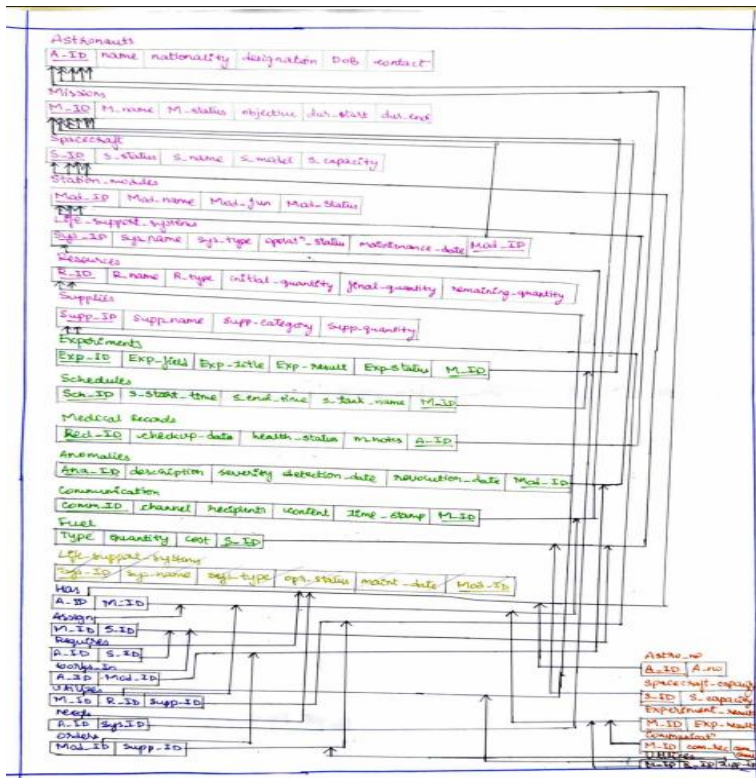 Astronauts
A_ID name nationality designation DoB contact
Missions
M_ID M_name M_status objective dur_start dur_end
Spacecraft
S_ID S_status S_name S_model S_capacity
Station_modules
Mod_ID Mod_name Mod_fun Mod_Status
Life_support_systems
Sys_ID Sys_name sys_type operatn_status maintenance_date Mod_ID
Resources
R_ID R_name R_type initial-quantity final-quantity remaining-quantity
Supplies
Supp_ID supp_name supp-category supp-quantity
Experiments
Exp_ID Exp_field Exp_title Exp_result Exp_status M_ID
Schedules
Sch_ID s_start_time s_end_time s_task_name M_ID
Medical Records
Rec_ID checkup_date health_status m_notes A_ID
Anomalies
Ana_ID description severity detection_date revolution_date Mod_ID
Communication
Comm_ID channel recipients content time_stamp M_ID
Fuel
Type quantity cost S_ID
Life_support_systems
Sys_ID sys_name sys_type opr_status maint_date Mod_ID
Has
A_ID M_ID
Assign
M_ID S_ID
Requires
A_ID S_ID
Works_In
A_ID Mod_ID
Utilises
M_ID R_ID Supp_ID
needs
A_ID Sys_ID
orders
Mod_ID Supp_ID
Astro_no
A_ID A_no
Spacecraft_capacity
S_ID S_capacity
Experiment_result
M_ID Exp_result
M_ID com_rec
Utilises
M_ID R_ID